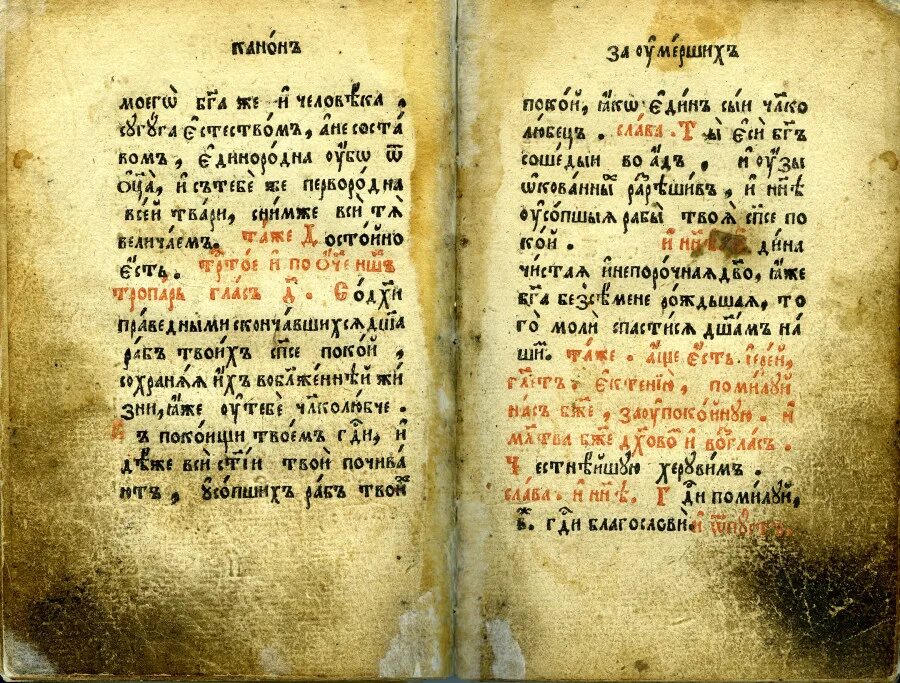 канѡ́нъ
моегѡ̀ бг҃а же и҆ человѣ́ка ,
сꙋгꙋ́ба є҆стество́мъ, а҆ не соста́
вомъ , є҆диноро́дна ᲂу҆́бѡ ѿ
ѻ҆ц҃а̀, и҆ съ тебѐ же перворо́дна
все́й тва́ри, сни́мже всѝ тѧ̀
велича́емъ. та́же Досто́йно
є҆́сть. трⷭ҇то́е и҆ по ѻ҆́ч҃е на́шъ
тропа́рь гла́съ д҃. Со дх҃и
пра́ведными сконча́вшихсѧ дш҃а
ра́бъ твои́хъ сп҃се поко́й ,
сохранѧ́ѧ и҆́хъ во бл҃же́ннѣй жи́
зни, ꙗ҆́же ᲂу҆ тебѐ чл҃колю́бче .
Въ поко́ищи твое́мъ гдⷭ҇и, и҆
дѣ́же всѝ ст҃і́и твоѝ почива́
ютъ , ᲂу҆со́пшихъ ра́бъ твои́хъ
за ᲂу҆ме́ршихъ
поко́й, ꙗ҆́кѡ є҆ди́нъ сы́и чл҃ко
лю́бецъ. сла́ва. Ты̀ є҆сѝ бг҃ъ
соше́дыи во а҆́дъ , и҆ ᲂу҆́зы
ѡ҆кова́нныⷯ разрѣши́въ , и҆ нн҃ѣ
ᲂу҆со́пшыѧ рабы̀ твоѧ̀ сп҃се по
ко́й . и҆ нн҃ѣ Є҆ди́на
чи́стаѧ и҆ непоро́чнаѧ дв҃о, ꙗ҆́же
бг҃а без сѣ́мене ро́ждьшаѧ, то
го̀ молѝ спасти́сѧ дш҃а́мъ на́
шиⷨ. та́же . а҆́ще є҆́сть і҆ере́й,
гл҃етъ. є҆ктенїю̀ , поми́лꙋй
на́съ бж҃е , заᲂупоко́йнꙋю . и҆
мл҃тва бж҃е дх҃ово́мъ и҆ во́згласъ .
Честнѣ́йшꙋю херꙋви́мъ .
сла́ва . и҆ нн҃ѣ. Гдⷭ҇и поми́лꙋй,
в҃. гдⷭ҇и благословѝ. и҆ ѿпꙋ́стъ .